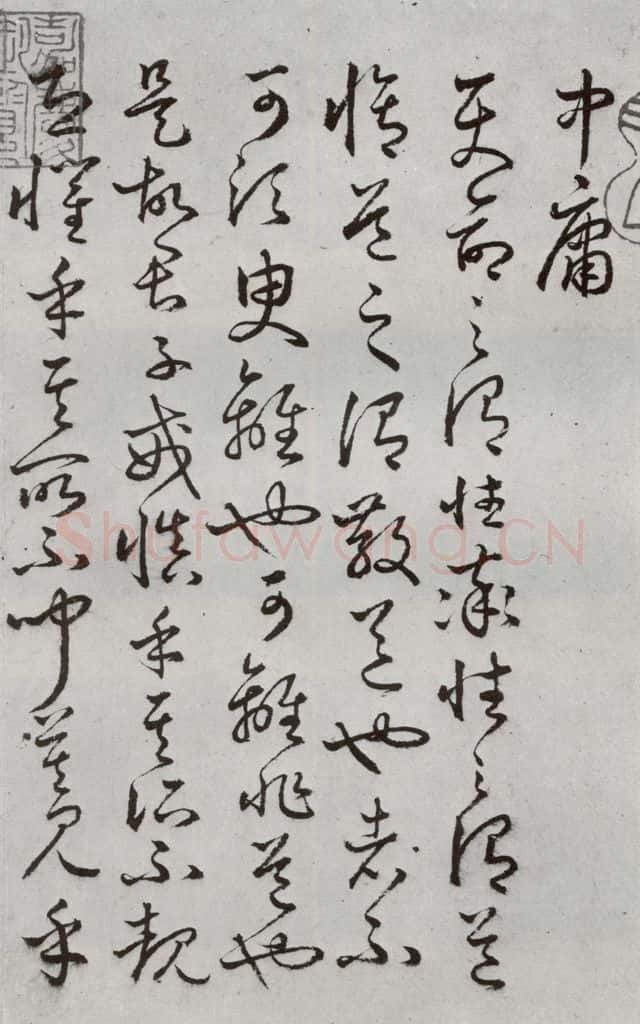 中庸
天命之謂性率性之謂道
脩道之謂教道也者不
可須臾離也可離非道也
是故君子戒慎乎其所不覩
恐懼乎其所不聞莫見乎
Shufawang.CN